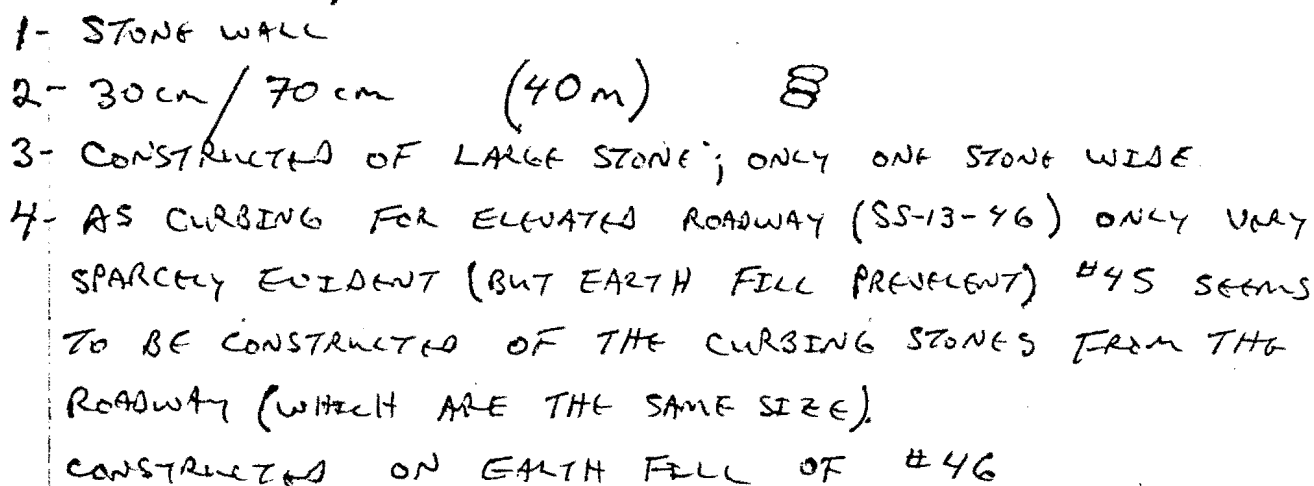 1- STONE WALL
2- 30 cm / 70 cm (40 m)
3- CONSTRUCTED OF LARGE STONE; ONLY ONE STONE WIDE
4- AS CURBING FOR ELEVATED ROADWAY (SS-13-46) ONLY VERY
SPARCELY EVIDENT (BUT EARTH FILL PREVELENT) #45 SEEMS
TO BE CONSTRUCTED OF THE CURBING STONES FROM THE
ROADWAY (WHICH ARE THE SAME SIZE).
CONSTRUCTED ON EARTH FILL OF #46